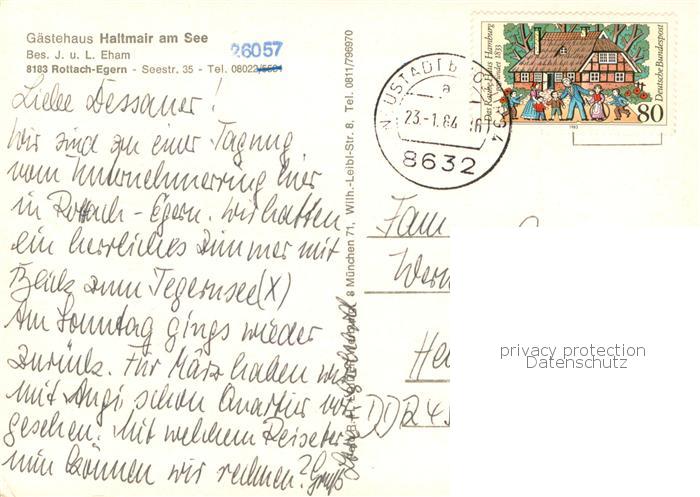 Gästehaus Haltmair am See
Bes. J. u. L. Eham
8183 Rottach-Egern - Seestr. 35 - Tel. 08022/
26057
Liebe Dessauer!
Wir sind zu einer Tagung
vom Unternehmerring hier
in Rottach-Egern. Wir hatten
ein herrliches Zimmer mit
Blick zum Tegernsee (X)
Am Sonntag gings wieder
zurück. Für März haben wir
mit Angi schon Quartier vor-
gesehen. Mit welchem Reiseter-
min können wir rechnen? Gruß
8 München 71, Wilh.-Leibl-Str. 8, Tel. 0811/798970
NEUSTADT b COBURG
a
23-1.84
8632
Das Rauhe Haus Hamburg
gegründet 1833
Deutsche Bundespost
80
1983
Fam
Wern
He
DDR 4
privacy protection
Datenschutz